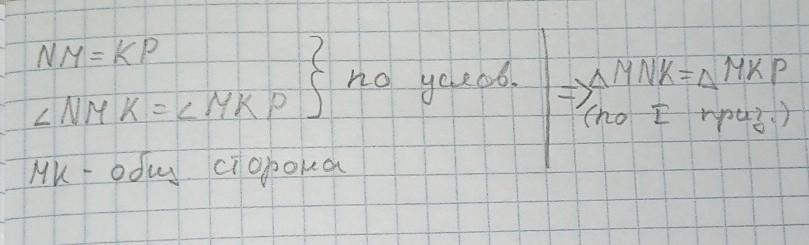 NM = KP
∠NMK = ∠MKP } по услов.
MK - общ сторона
=> △MNK = △MKP
(по I приз.)